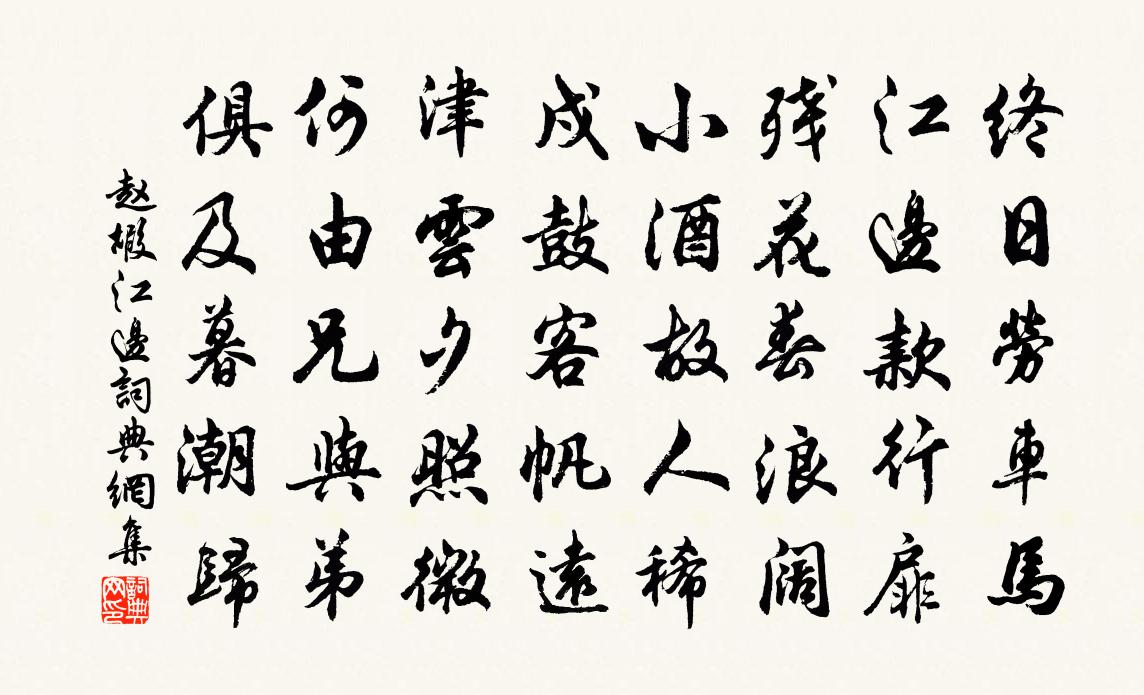 终日勞車馬
江邊款行扉
残花春浪阔
小酒故人稀
戍鼓客帆遠
津雲夕照微
何由兄與弟
俱及暮潮歸
赵嘏江邊詞典網集
詞典